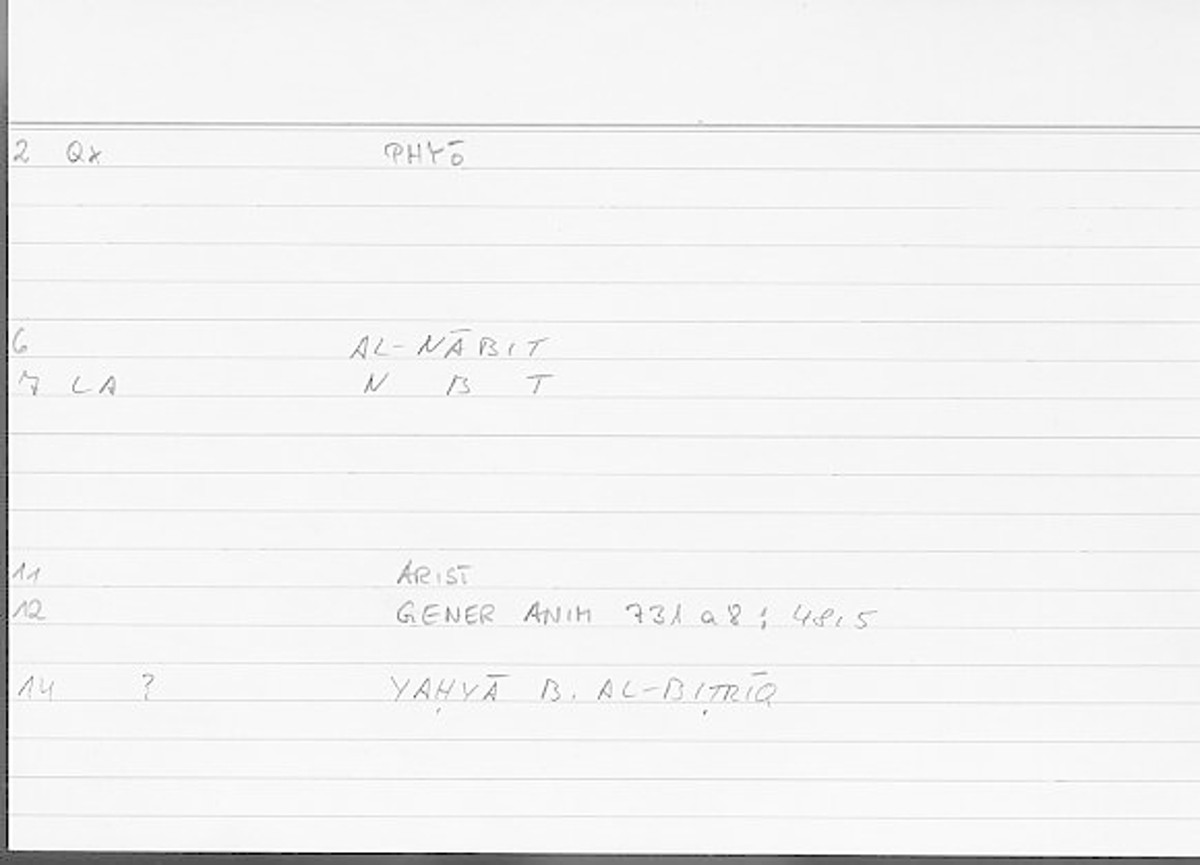 2 Qx PHYŌ
6 AL-NĀBIT
7 LA N B T
11 ARIST
12 GENER ANIM 731 a 8 ; 48,5
14 ? YAḤYĀ B. AL-BIṬRĪQ